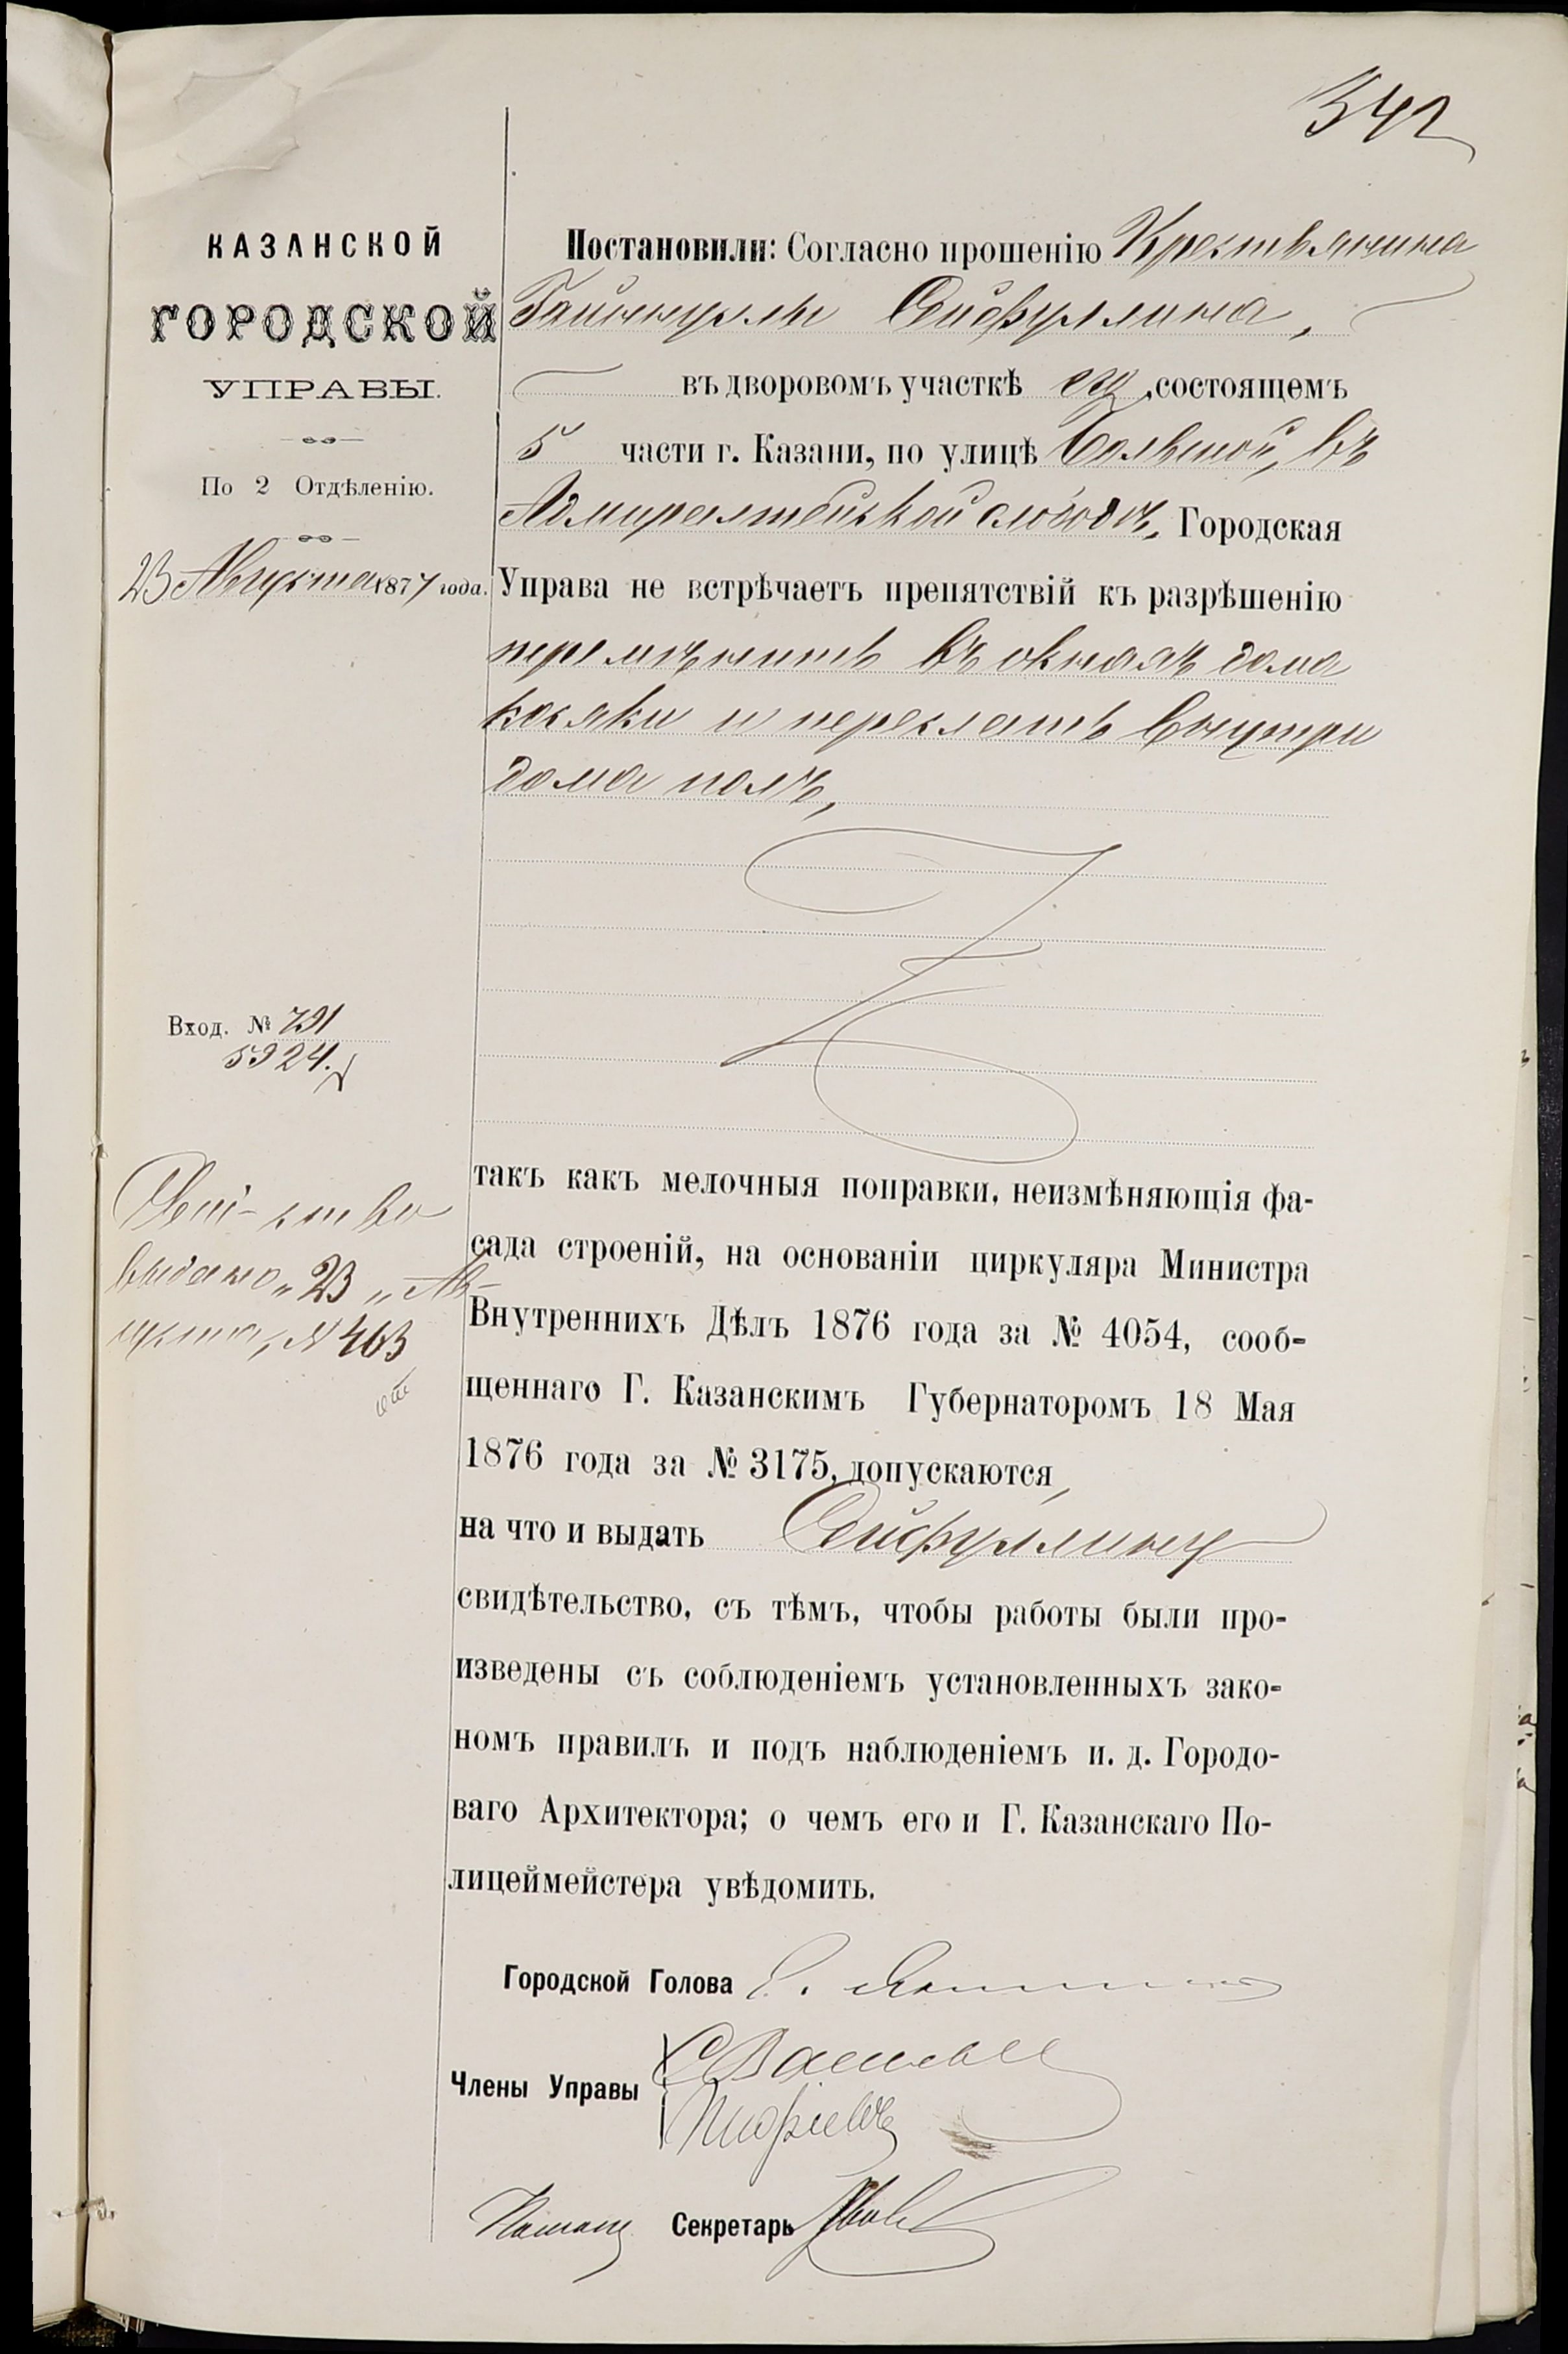 342
КАЗАНСКОЙ
ГОРОДСКОЙ
УПРАВЫ.
По 2 Отдѣленію.
23 Августа 1877 года.
Вход. № 791
5924.
Свид-ство
выдано „23„ Ав-
густа, № 463
Постановили: Согласно прошенію Крестьянина
Гайнуллы Сейфуллина,
въ дворовомъ участкѣ его, состоящемъ
5 части г. Казани, по улицѣ Большой, въ
Адмиралтейской слободѣ, Городская
Управа не встрѣчаетъ препятствій къ разрѣшенію
перемѣнить въ окнахъ дома
косяки и переслать внутри
дома полъ,
такъ какъ мелочныя поправки, неизмѣняющія фа-
сада строеній, на основаніи циркуляра Министра
Внутреннихъ Дѣлъ 1876 года за № 4054, сооб-
щеннаго Г. Казанскимъ Губернаторомъ 18 Мая
1876 года за № 3175, допускаются,
на что и выдать Сейфуллину
свидѣтельство, съ тѣмъ, чтобы работы были про-
изведены съ соблюденіемъ установленныхъ зако-
номъ правилъ и подъ наблюденіемъ и. д. Городо-
ваго Архитектора; о чемъ его и Г. Казанскаго По-
лицеймейстера увѣдомить.
Городской Голова
Члены Управы
Секретарь